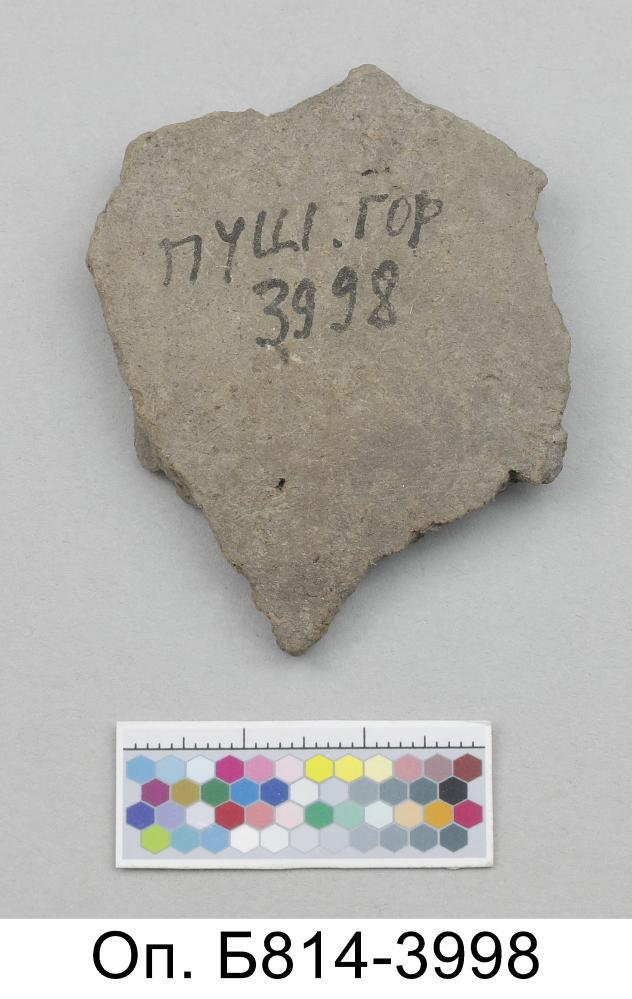 ПУШ. ГОР
3998
Оп. Б814-3998